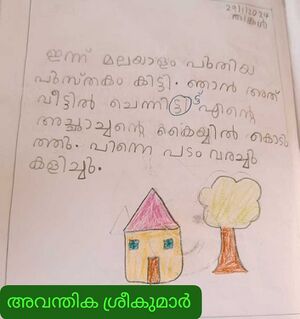 29/1/2024
തിങ്കൾ
ഇന്ന് മലയാളം പുതിയ
പുസ്തകം കിട്ടി. ഞാൻ അത്
വീട്ടിൽ ചെന്നിട്ട് എൻ്റെ
അച്ഛാച്ചൻ്റെ കൈയ്യിൽ കൊടു
ത്തു. പിന്നെ പടം വരച്ചു
കളിച്ചു.
അവന്തിക ശ്രീകുമാർ